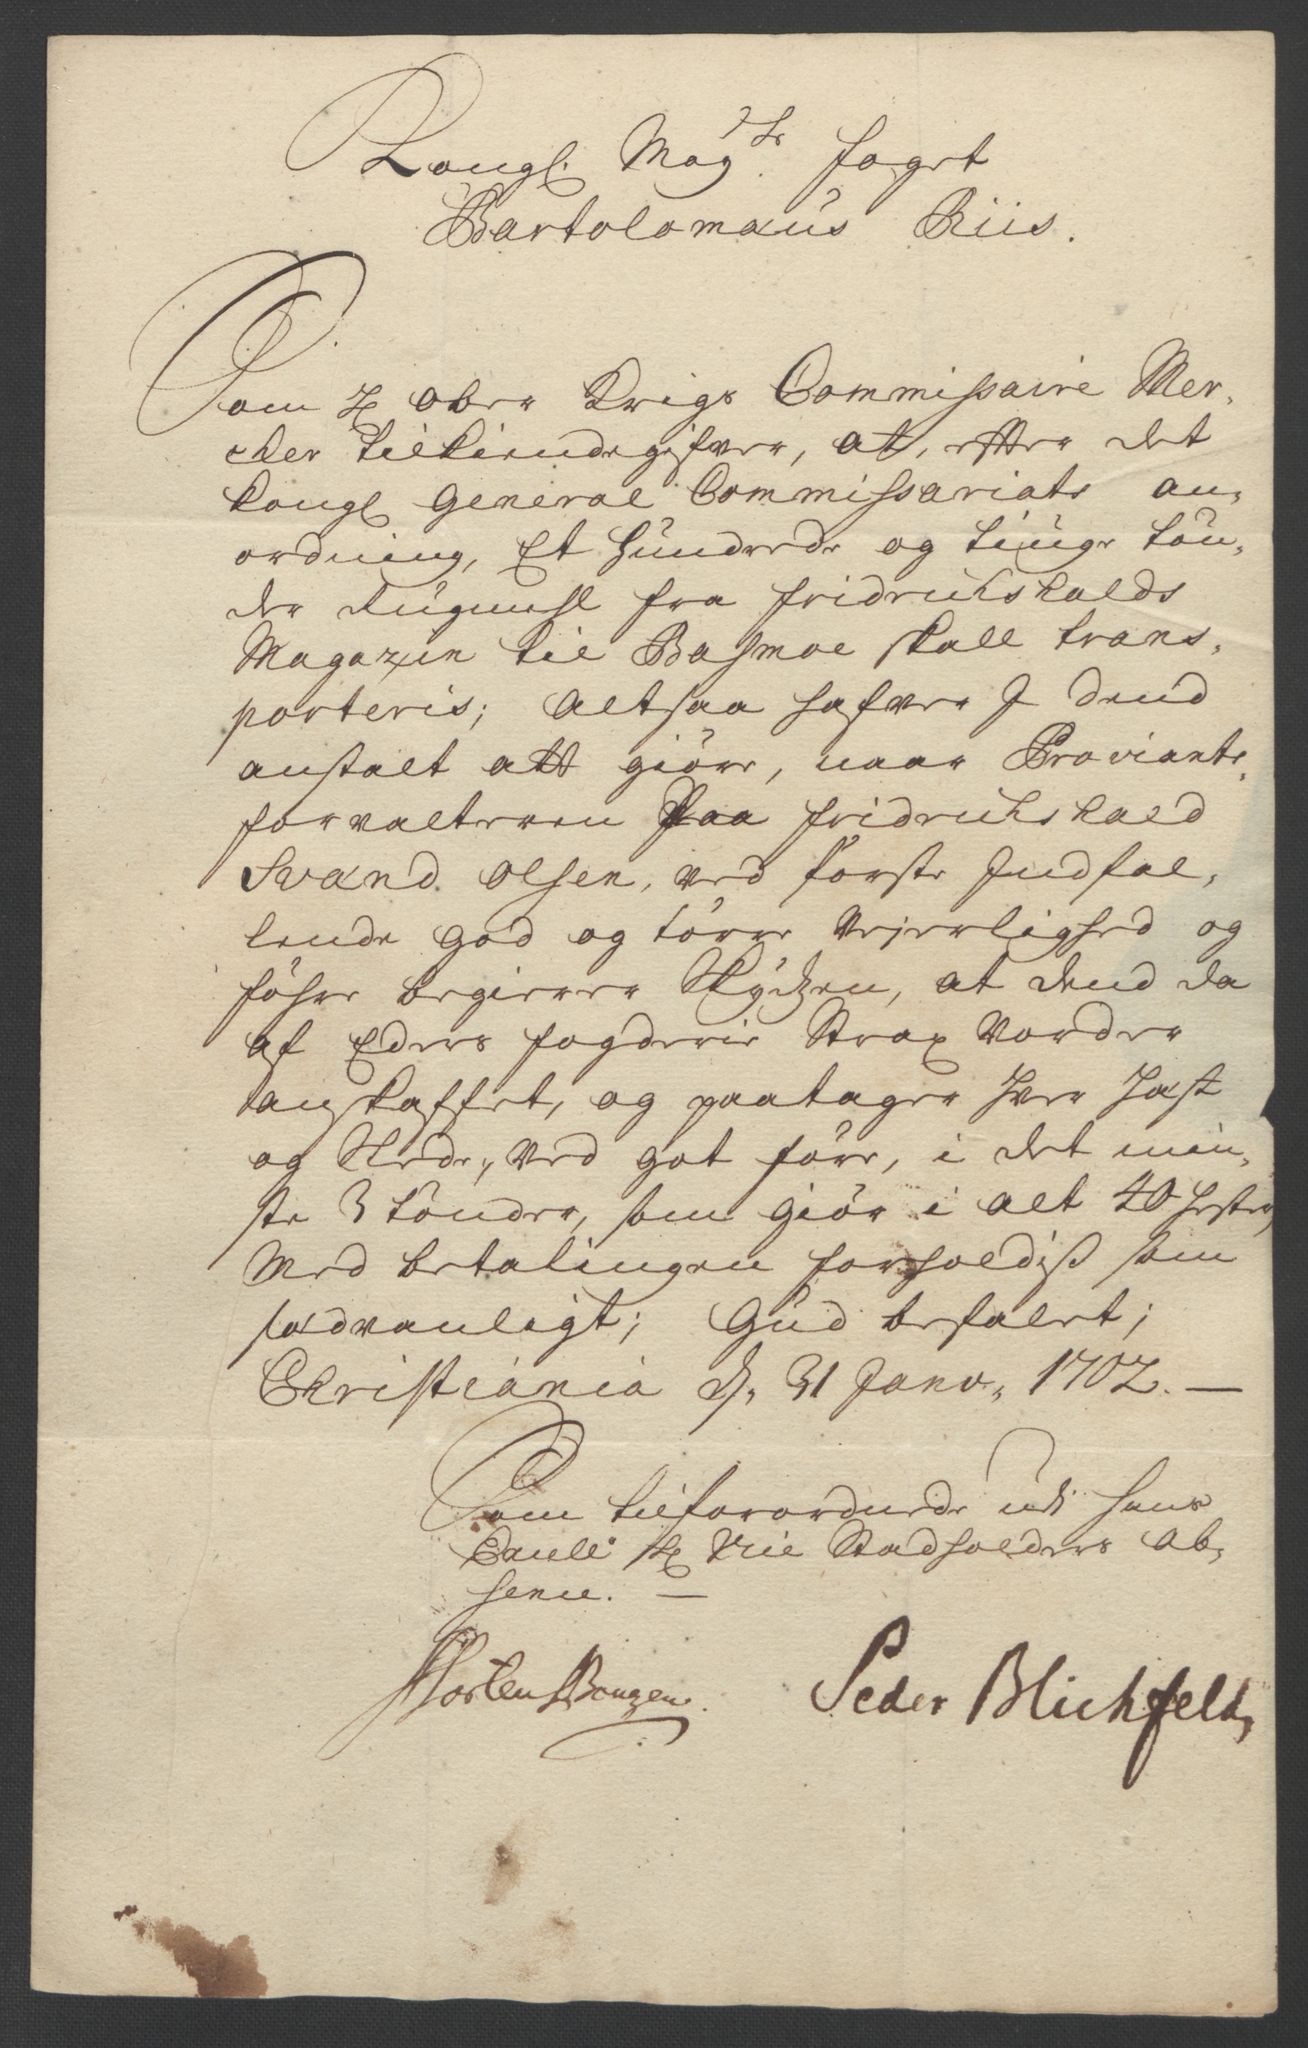 Kongl. May.ts foget
Bartolomæus Riis.
Som H ober Krigs Commissaire Mer,
cker tilkiendegifver, at, efter det
Kongl General Commissariats an,
ordning, Et hundrede og tiuge tön,
der Rugmehl fra Fridrichshalds
Magazin til Basmoe skall trans,
porteris; Altsaa hafver I dend
anstalt att giöre, naar Proviant,
forvalteren Paa Fridrichshald
Svend Olsen, ved förste Indfal,
lende god og törre Vejerlighed og
föhre begierer Skydzen, at dend da
af Eders fogderie Strax Vorder
anskaffet, og paatager hver hæst
og Slede, ved got före, i det min,
ste 3 tönder, som giör i alt 40 hester,
Med betalingen forholdiss som
sædvanligt; Gud befalet;
Christiania d. 31 Janv. 1702. —
Som tilforordnede udi hans
Excell: H Vice Stadholders Ab,
sence. —
Peder Blichfeld,